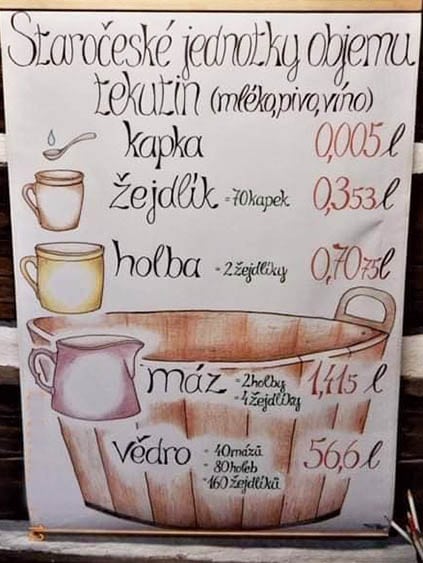 Staročeské jednotky objemu
tekutin (mléko,pivo,víno)
kapka 0,005 l
žejdlík =70kapek 0,353 l
holba =2žejdlíky 0,7075 l
máz =2holby 1,415 l
=4žejdlíky
vědro =40mázů 56,6 l
=80holeb
=160žejdlíků